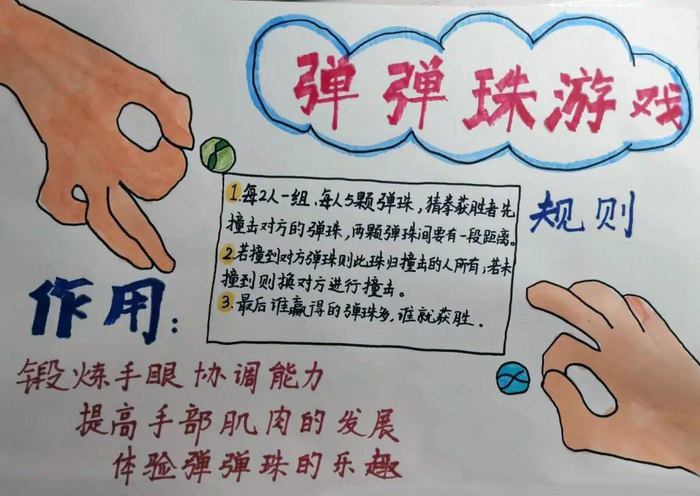 弹弹珠游戏
1.每2人一组、每人5颗弹珠，猜拳获胜者先
撞击对方的弹珠，两颗弹珠间要有一段距离。
2.若撞到对方弹珠则此珠归撞击的人所有；若未
撞到则换对方进行撞击。
3.最后谁赢得的弹珠多，谁就获胜．
规则
作用：
锻炼手眼协调能力
提高手部肌肉的发展
体验弹弹珠的乐趣